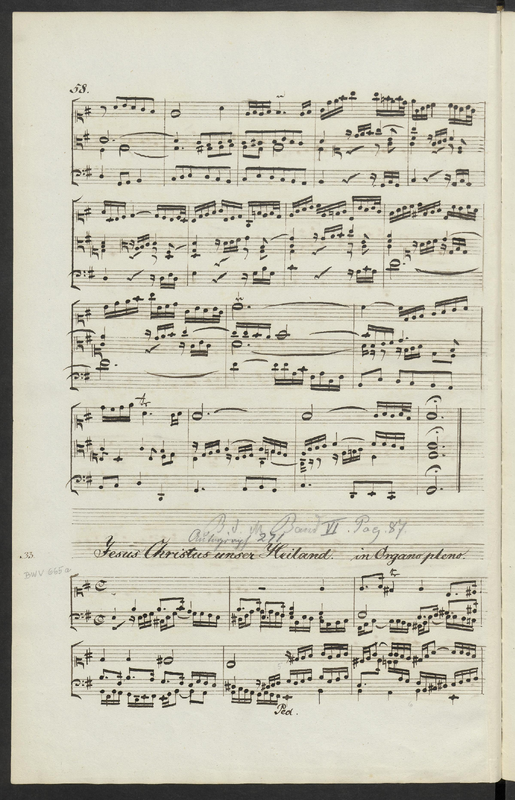 58.
tr
B. d. M. Band VI. Pag. 87
33.
Jesus Christus unser Heiland. in Organo pleno.
BWV 665a
Ped.